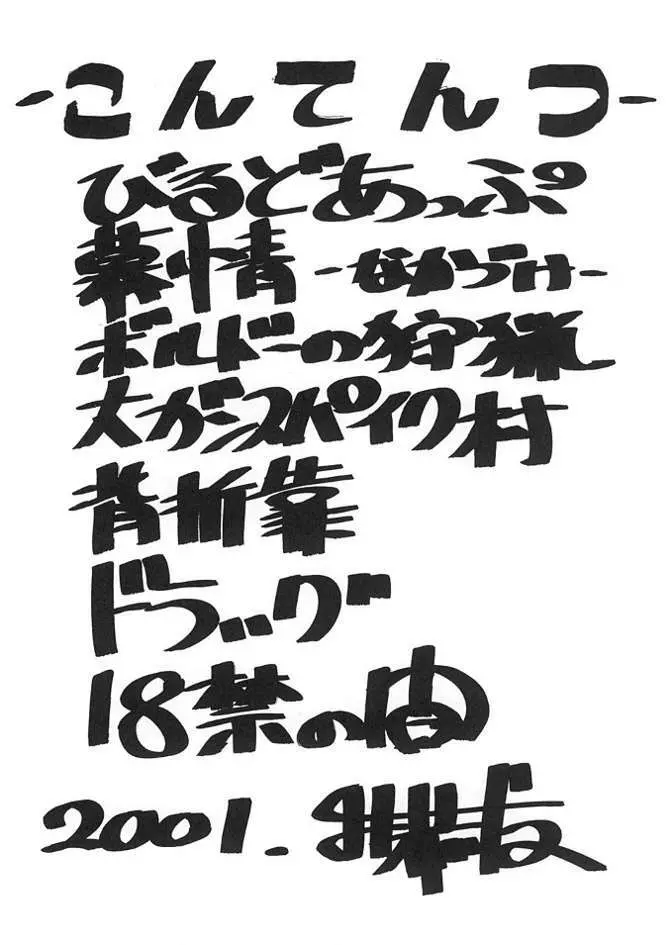 -こんてんつ-
びるどあっぷ
慕情 -なかづけ-
ボルドーの狩猟
大がシスパイク村
背折靠
ドラッグ
18禁の由
2001.